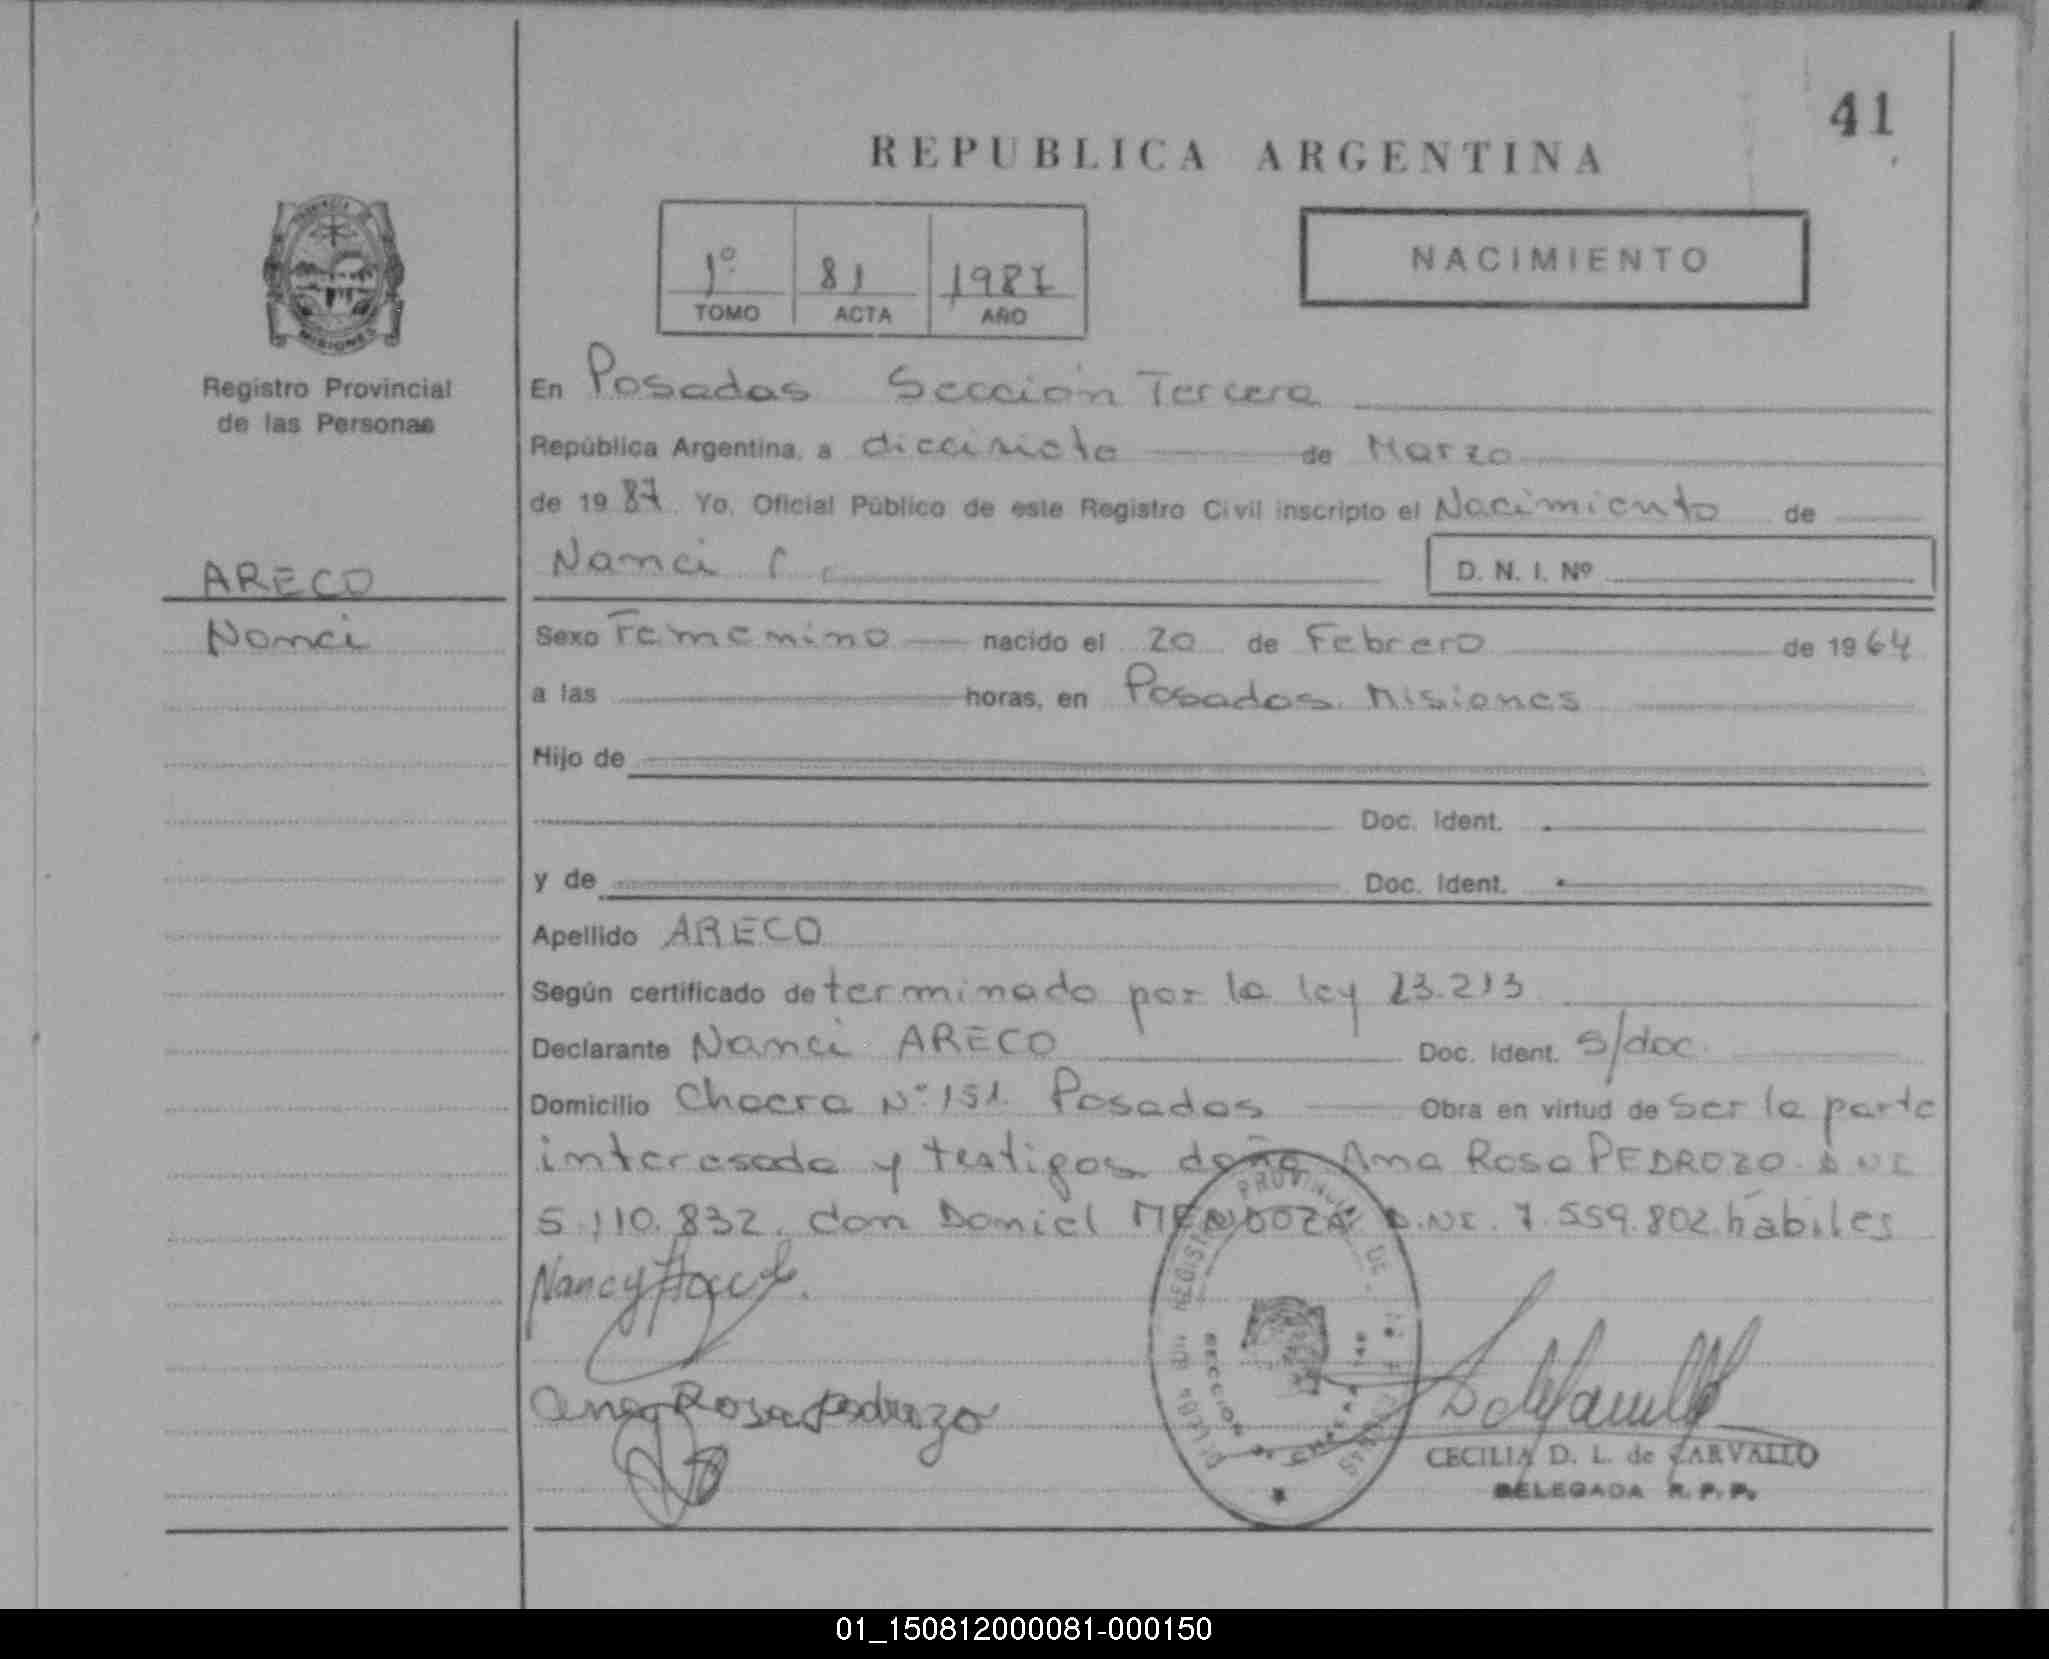 41
REPUBLICA ARGENTINA
1º 81 1987
TOMO ACTA AÑO
NACIMIENTO
MISIONES
Registro Provincial
de las Personas
ARECO
Nanci
En Posadas Sección Tercera
República Argentina, a diecisiete de Marzo
de 1987. Yo, Oficial Público de este Registro Civil inscripto el Nacimiento de
Nanci
D. N. I. Nº
Sexo Femenino nacido el 20 de Febrero de 1964
a las horas, en Posadas. Misiones
Hijo de
Doc. Ident.
y de Doc. Ident.
Apellido ARECO
Según certificado determinado por la ley 23.213
Declarante Nanci ARECO Doc. Ident. s/doc.
Domicilio Chacra Nº 151. Posadas Obra en virtud de ser la parte
interesada y testigos doña Ana Rosa PEDROZO. D NI
5.110.832. don Daniel MENDOZA D.NI. 7.559.802.hábiles
Nancy
Ana Rosa pedrozo
CECILIA D. L. de CARVALLO
DELEGADA R. P. P.
01_150812000081-000150